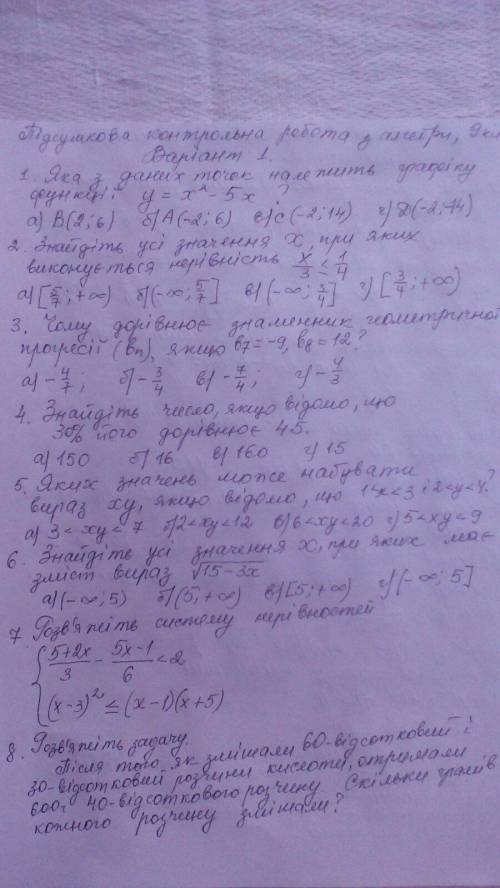 Підсумкова контрольна робота з алгебри, 9 кл
Варіант 1.
1. Яка з даних точок належить графіку
функції y = x² - 5x ?
а) B(2; 6) б) A(-2; 6) в) C(-2; 14) г) D(-2; -14)
2. Знайдіть усі значення x, при яких
виконується нерівність x/3 ≤ 1/4
а) [5/7; +∞) б) (-∞; 5/7] в) (-∞; 3/4] г) [3/4; +∞)
3. Чому дорівнює знаменник геометричної
прогресії (bn), якщо b7 = -9, b8 = 12?
а) -4/7; б) -3/4 в) -7/4; г) -4/3
4. Знайдіть число, якщо відомо, що
30% його дорівнює 45.
а) 150 б) 16 в) 160 г) 15
5. Яких значень може набувати
вираз xy, якщо відомо, що 1<x<3 і 2<y<4?
а) 3 < xy < 7 б) 2<xy<12 в) 6<xy<20 г) 5<xy<9
6. Знайдіть усі значення x, при яких має
зміст вираз √15-3x
а) (-∞; 5) б) (5; +∞) в) [5; +∞) г) (-∞; 5]
7 Розв'яжіть систему нерівностей
{ (5+2x)/3 - (5x-1)/6 < 2
(x-3)² ≤ (x-1)(x+5)
8. Розв'яжіть задачу.
Після того, як змішали 60-відсотковий і
30-відсотковий розчини кислоти, отримали
600г 40-відсоткового розчину. Скільки грамів
кожного розчину змішали?